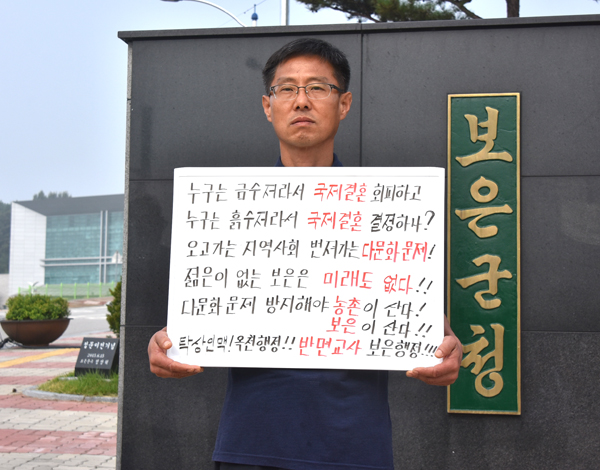 누구는 금수저라서 국제결혼 회피하고
누구는 흙수저라서 국제결혼 결정하나?
오고가는 지역사회 번져가는 다문화 문제!
젊은이 없는 보은은 미래도 없다.!!
다문화 문제 방지해야 농촌이 산다!
보은이 산다.!!
탁상인맥!옥천행정!! 반면교사 보은행정!!!
보은군청